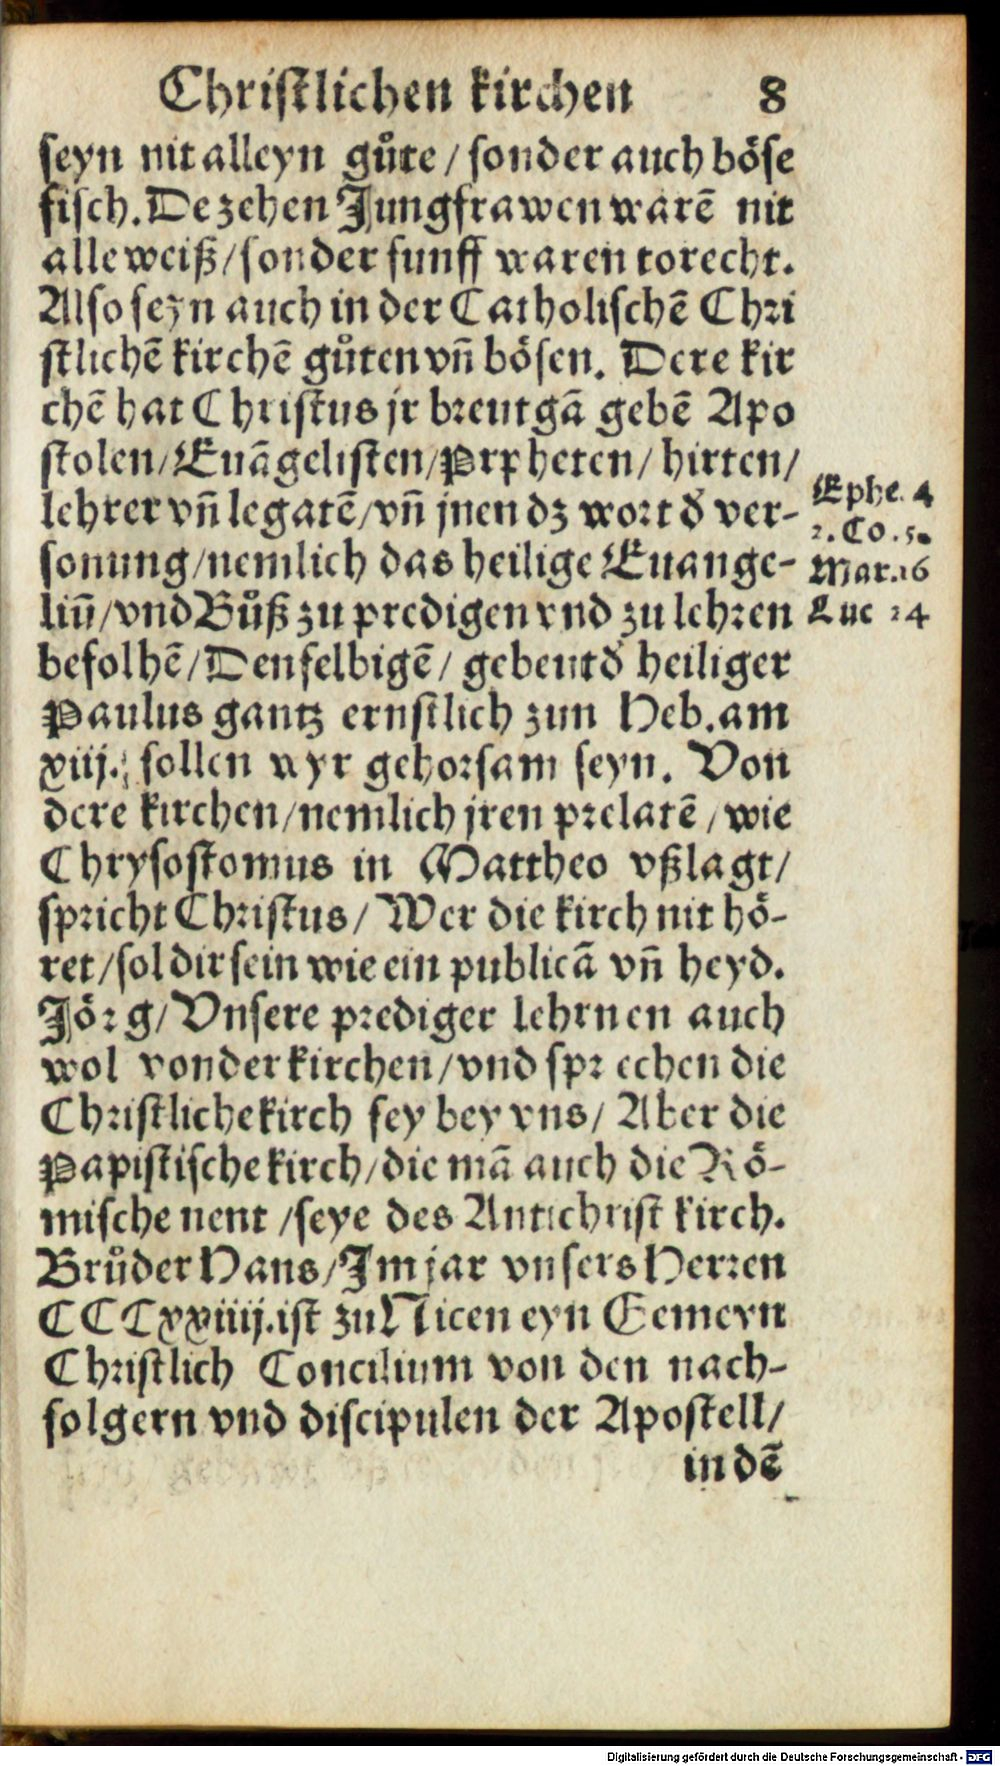 Christlichen kirchen 8
seyn nit alleyn gůte / sonder auch böse
fisch. De zehen Jungfrawen warē nit
alle weiß / sonder funff waren torecht.
Also seyn auch in der Catholischē Chri
stlichē kirchē gůten vñ bösen. Dere kir
chē hat Christus jr breutgā gebē Apo
stolen / Euāgelisten / Prpheten / hirten /
lehrer vñ legatē / vñ jnen dz wort d̕ ver-
sonung / nemlich das heilige Euange-
liū / vnd Bůß zu predigen vnd zu lehren
befolhē / Denselbigē / gebeut d̕ heiliger
Paulus gantz ernstlich zun Heb. am
xiij. sollen wyr gehorsam seyn. Von
dere kirchen / nemlich jren prelatē / wie
Chrysostomus in Mattheo vßlagt /
spricht Christus / Wer die kirch nit hö-
ret / sol dir sein wie ein publicā vñ heyd.
Jörg / Vnsere prediger lehrnen auch
wol von der kirchen / vnd sprechen die
Christliche kirch sey bey vns / Aber die
Papistische kirch / die mā auch die Rö-
mische nent / seye des Antichrist kirch.
Brůder Hans / Im jar vnsers Herren
CCCxxiiij. ist zu Nicen eyn Gemeyn
Christlich Concilium von den nach-
folgern vnd discipulen der Apostell /
in dē
Ephe. 4
2. Co. 5.
Mar. 16
Luc 24
Digitalisierung gefördert durch die Deutsche Forschungsgemeinschaft - DFG